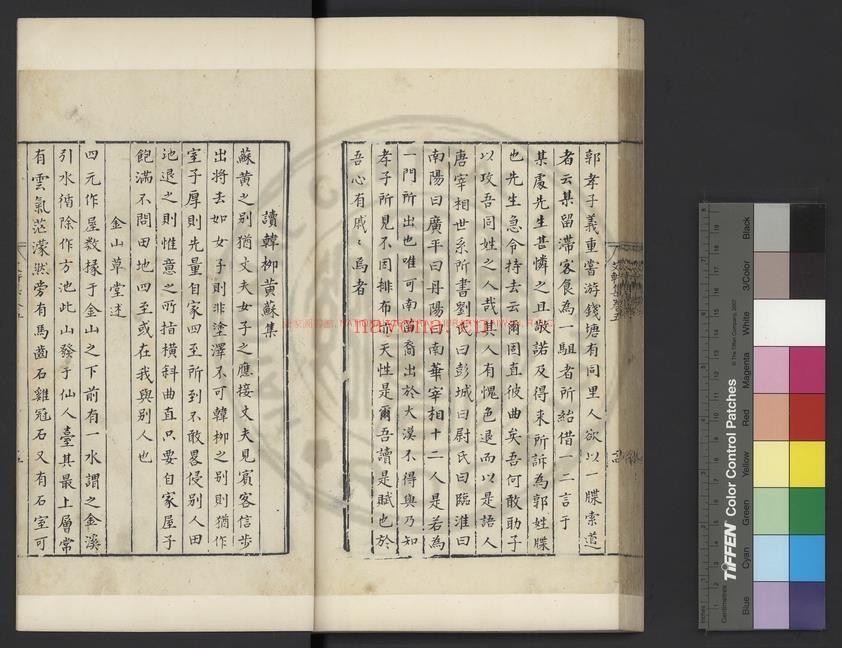 郭孝子義重嘗游錢塘有同里人欲以一牒索道
者云某留滯客食為一駔者所紿借一二言于
某處先生甚憐之且敬諾及得來所訴為郭姓牒
也先生急令持去云爾固直彼曲矣吾何敢助子
以攻吾同姓之人哉其人有愧色退而以是語人
唐宰相世系所書劉氏曰彭城曰尉氏曰臨淮曰
南陽曰廣平曰丹陽曰南華宰相十二人是若為
一門所出也唯河南 裔出於大漠不得與乃知
孝子所見不因排布亦天性是爾吾讀是賦也於
吾心有戚〻焉者
讀韓柳黃蘇集
蘇黃之別猶丈夫女子之應接丈夫見賓客信步
出將去如女子則非塗澤不可韓柳之別則猶作
室子厚則先量自家四至所到不敢畧侵別人田
地退之則惟意之所指橫斜曲直只要自家屋子
飽滿不問田地四至或在我與別人也
金山草堂述
四元作屋数椽于金山之下前有一水謂之金溪
引水循除作方池此山發于仙人臺其最上層常
有雲氣茫濛然旁有馬齒石雞冠石又有石室可
navona.cp
TIFFEN Color Control Patches
© The Tiffen Company, 2007
Centimetres
Inches
Blue
Cyan
Green
Yellow
Red
Magenta
White
3/Color
Black